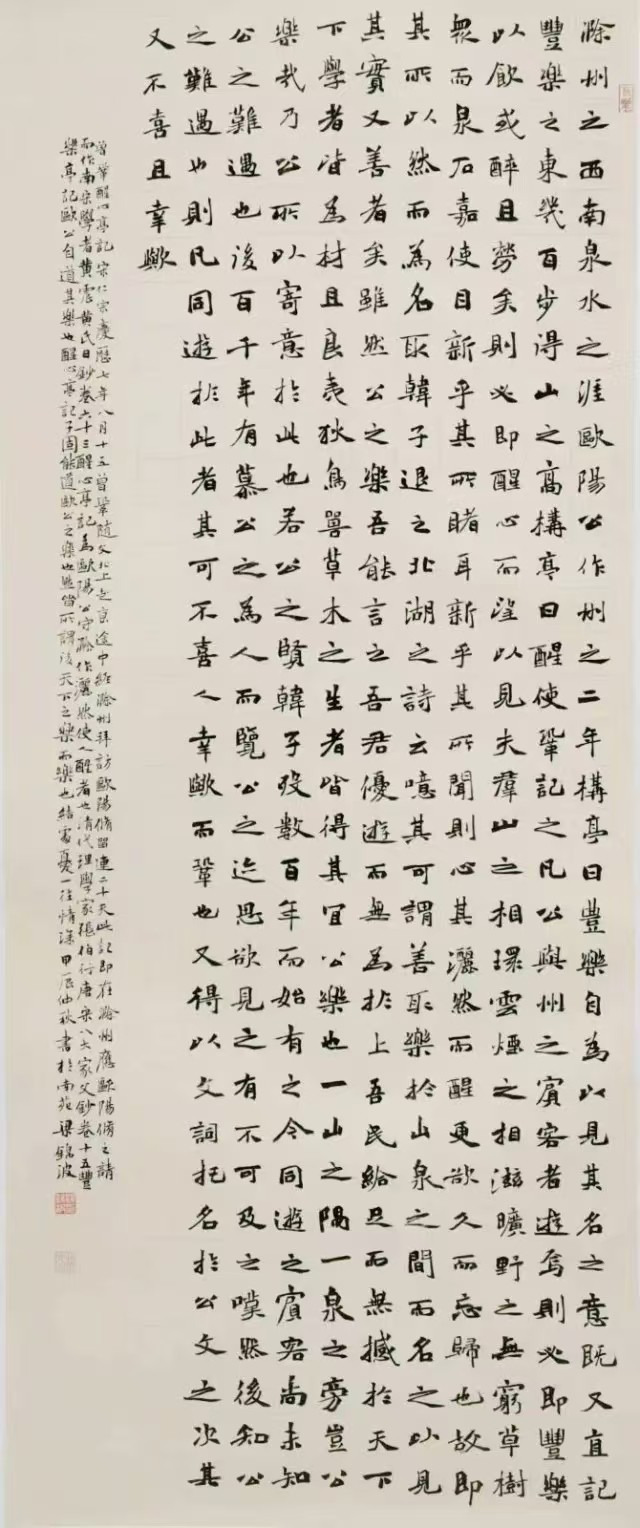 滁州之西南泉水之涯歐陽公作州之二年構亭曰豐樂自為以見其名之意既又直記
豐樂之東幾百步得山之高構亭曰醒使鞏記之凡公與州之賓客者遊焉則必即豐樂
以飲或醉且勞矣則必即醒心而望以見夫羣山之相環雲煙之相滋曠野之無窮草樹
衆而泉石嘉使目新乎其所睹耳新乎其所聞則心其灑然而醒更欲久而忘歸也故即
其所以然而為名取韓子退之北湖之詩云噫其可謂善取樂於山泉之間而名之以見
其實又善者矣雖然公之樂吾能言之吾君優遊而無為於上吾民給足而無憾於天下
下學者皆為材且良夷狄鳥獸草木之生者皆得其宜公樂也一山之隅一泉之旁豈公
樂哉乃公所以寄意於此也若公之賢韓子歿數百年而始有之今同遊之賓客尚未知
公之難遇也後百千年有慕公之為人而覽公之迹思欲見之有不可及之嘆然後知公
之難遇也則凡同遊於此者其可不喜人幸歟而鞏也又得以文詞托名於公文之次其
又不喜且幸歟
曾鞏醒心亭記宋仁宗慶曆七年八月十五曾鞏隨父北上赴京途中經滁州拜訪歐陽脩留連二十天此記即在滁州應歐陽脩之請
而作南宋學者黃震黃氏日鈔卷六十三醒心亭記為歐陽公守滁作灑然使人醒者也清代理學家張伯行唐宋八大家文鈔卷十五豐
樂亭記歐公自道其樂也醒心亭記子固能道歐公之樂也然皆所謂後天下之樂而樂也結處憂一往情深甲辰仲秋書於南苑梁錦波